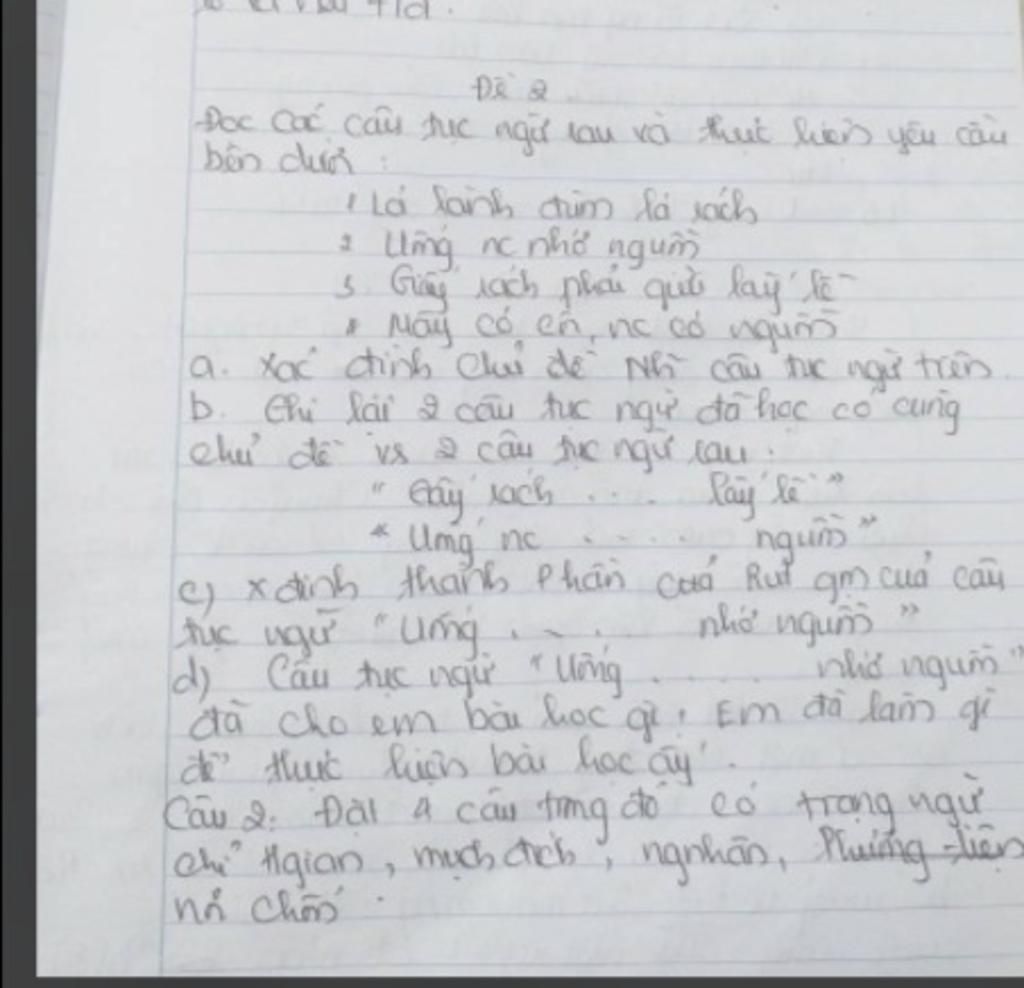 Đề 2
Đọc các câu tục ngữ sau và thực hiện yêu cầu
bên dưới :
1 Lá lành đùm lá rách
2 Uống nc nhớ nguồn
3. Giấy rách phải giữ lấy lề
Mây có en, nc có nguồn
a. Xác định chủ đề Nh~ câu tục ngữ trên.
b. Ghi lại 2 câu tục ngữ đã học có cùng
chủ đề vs 2 câu tục ngữ sau :
" Gấy rách .... lấy lề "
" Uống nc .... nguồn "
c) x định thành phần của Rút gọn của câu
tục ngữ " Uống .... nhớ nguồn "
d) Câu tục ngữ " Uống .... nhớ nguồn "
đã cho em bài học gì, Em đã làm gì
để thực hiện bài học ấy .
Câu 2: Đặt 4 câu trong đó có trạng ngữ
chỉ tgian, mục đích, ngnhân, Phương tiện
nơi chốn .